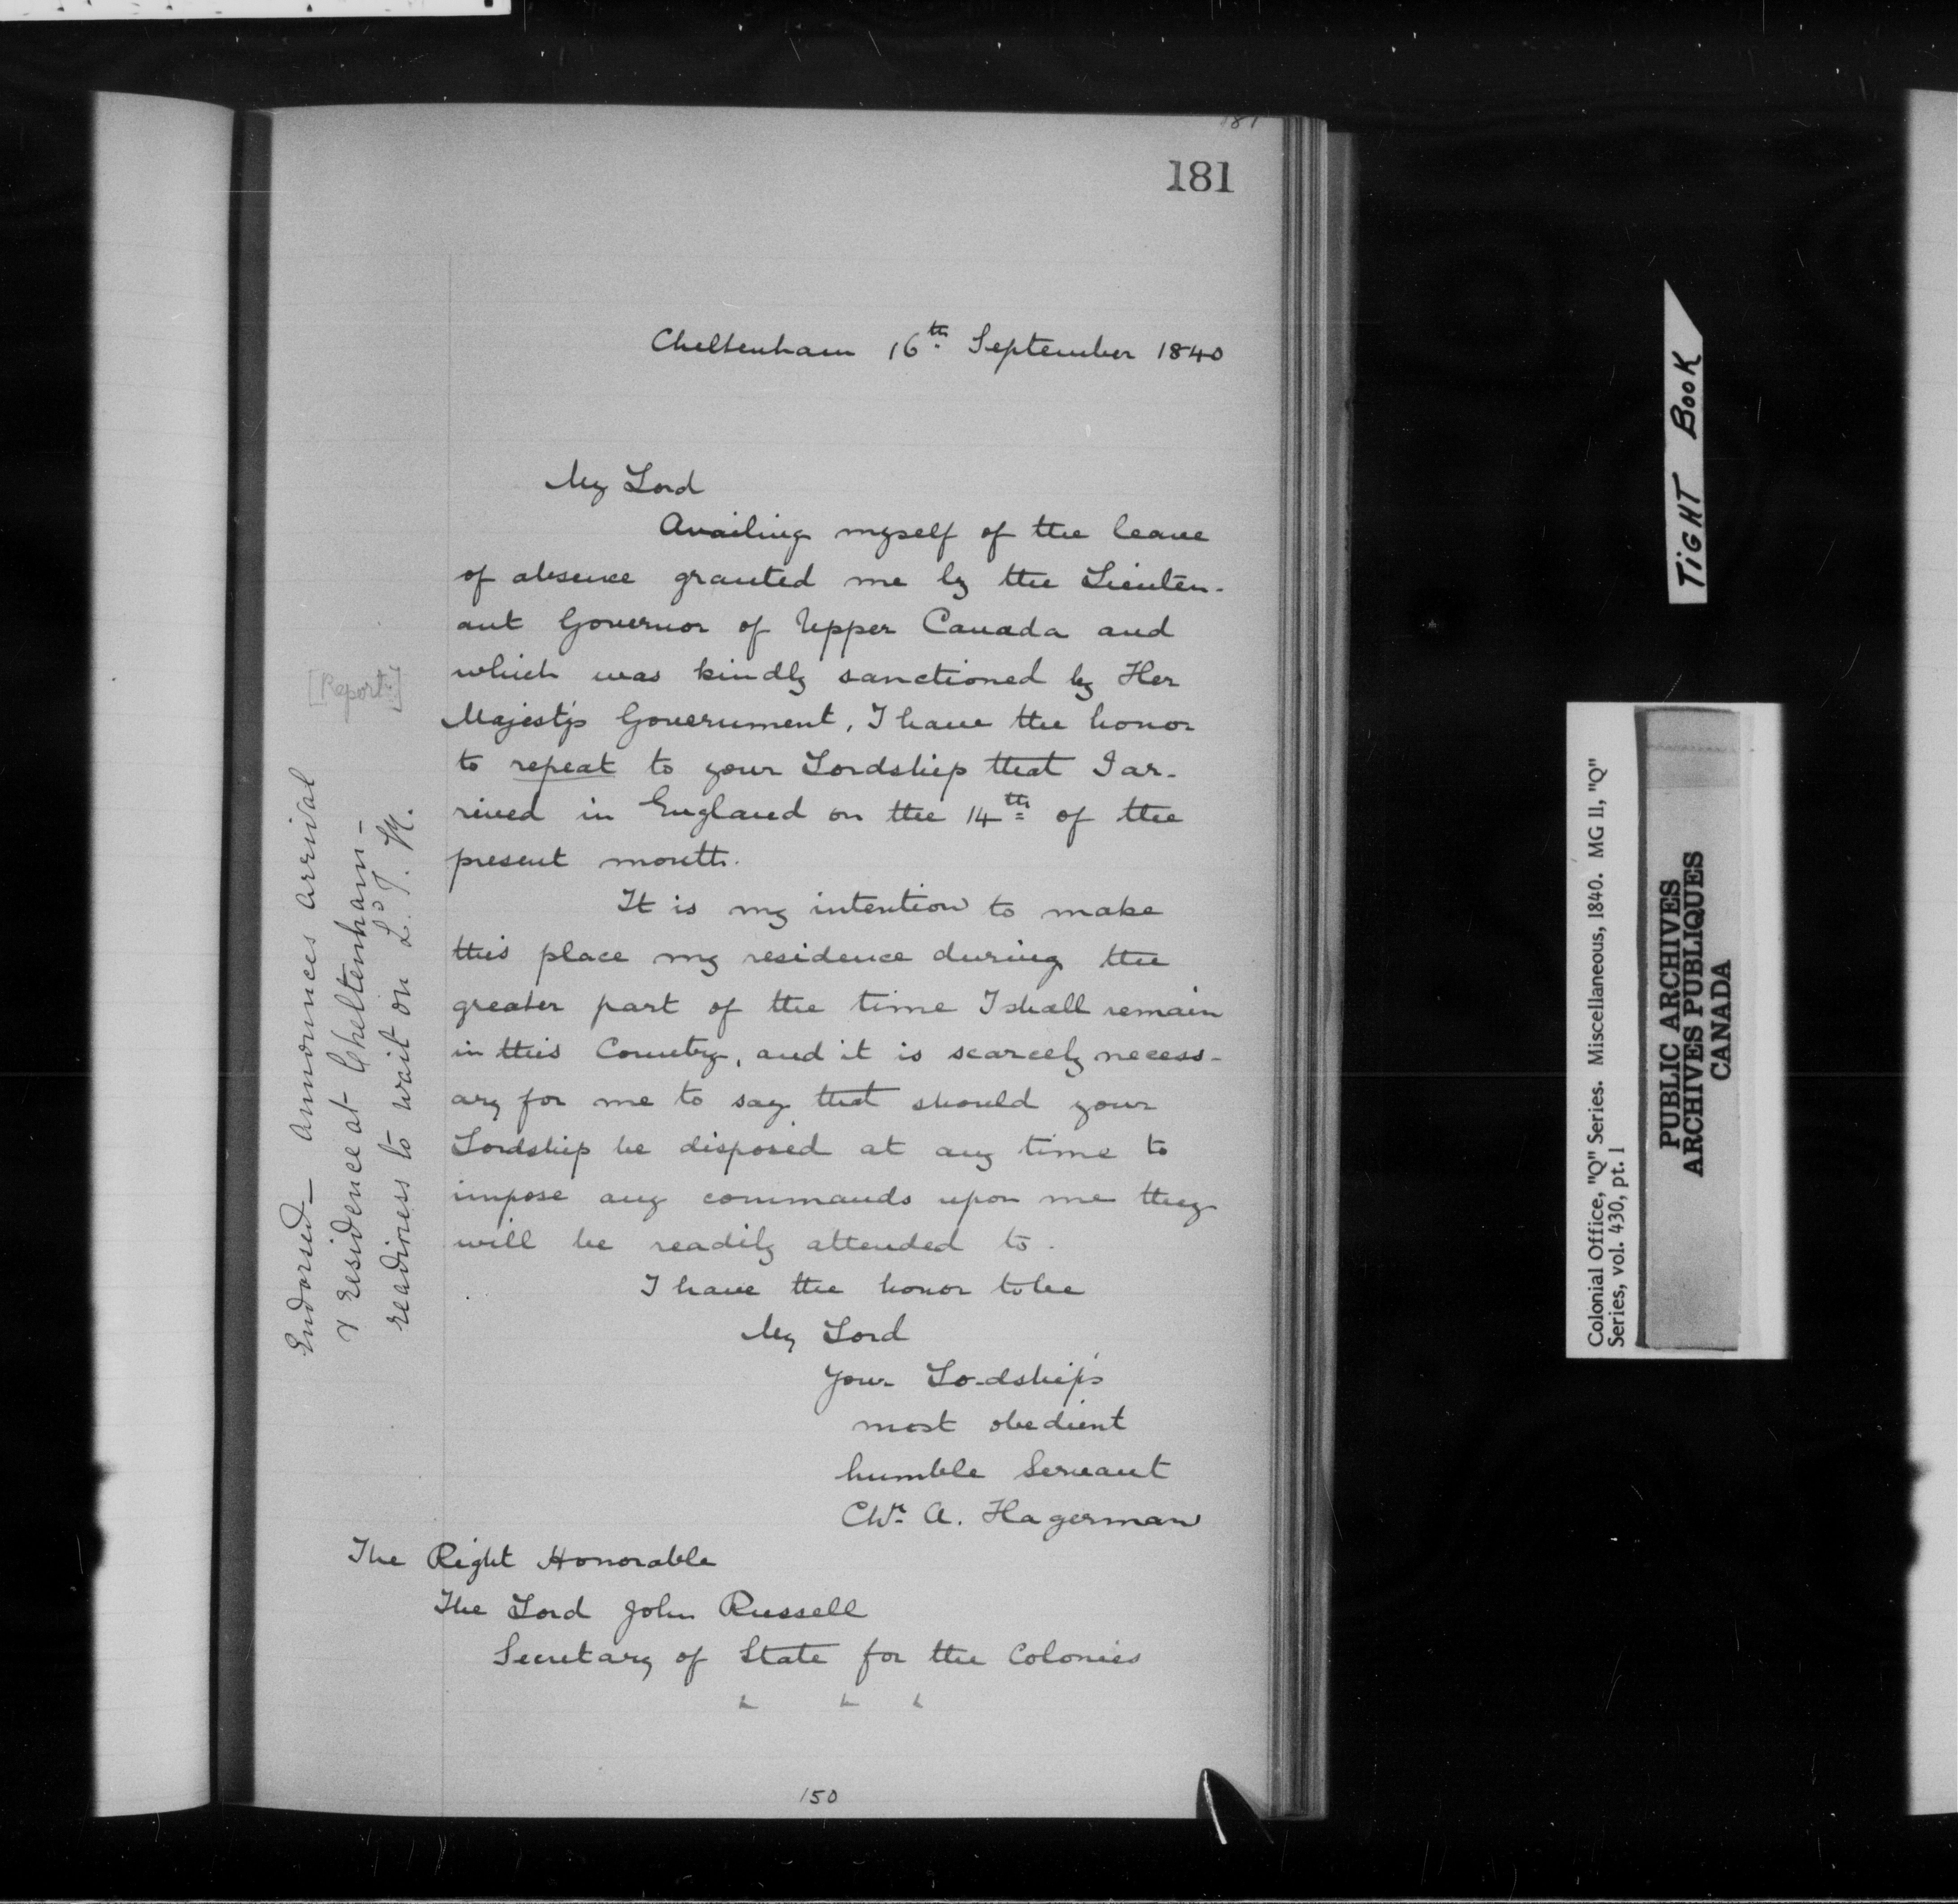 181
181
Cheltenham 16th September 1840
My Lord
Availing myself of the leave
of absence granted me by the Lieuten-
ant Governor of Upper Canada and
which was kindly sanctioned by Her
Majesty's Government, I have the honor
to repeat to your Lordship that I ar-
rived in England on the 14th of the
present month.
It is my intention to make
this place my residence during the
greater part of the time I shall remain
in this Country, and it is scarcely necess-
ary for me to say that should your
Lordship be disposed at any time to
impose any commands upon me they
will be readily attended to.
I have the honor to be
My Lord
Your Lordship's
most obedient
humble Servant
Chr. A. Hagerman
The Right Honorable
The Lord John Russell
Secretary of State for the Colonies
150
[Report.]
Endorsed— Announces arrival
& residence at Cheltenham—
readiness to wait on
TIGHT BOOK
Colonial Office, "Q" Series. Miscellaneous, 1840. MG 11, "Q"
Series, vol. 430, pt. 1
PUBLIC ARCHIVES
ARCHIVES PUBLIQUES
CANADA